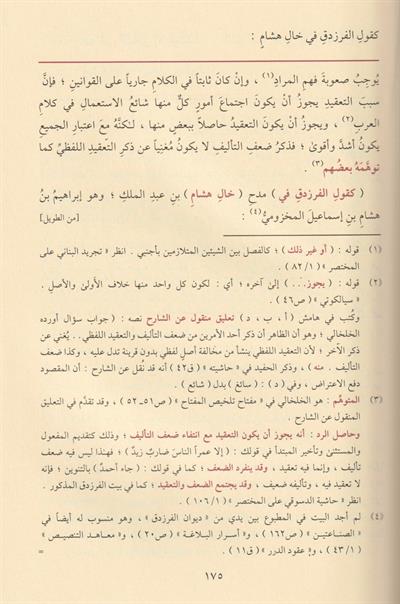 كقولِ الفرزدقِ في خالِ هشامٍ :
يُوجِبُ صعوبةَ فهمِ المرادِ(١) ، وإنْ كانَ ثابتاً في الكلامِ جارياً على القوانينِ ؛ فإنَّ
سببَ التعقيدِ يجوزُ أنْ يكونَ اجتماعَ أمورٍ كلٌّ منها شائعُ الاستعمالِ في كلامِ
العربِ(٢) ، ويجوزُ أنْ يكونَ التعقيدُ حاصلاً ببعضٍ منها ، لكنَّهُ معَ اعتبارِ الجميعِ
يكونُ أشدَّ وأقوىٰ ؛ فذكرُ ضعفِ التأليفِ لا يكونُ مُغنِياً عن ذكرِ التعقيدِ اللفظيِّ كما
توهَّمَهُ بعضُهم(٣) .
( كقولِ الفرزدقِ في ) مدحِ ( خالِ هشامِ ) بنِ عبدِ الملكِ ؛ وهو إبراهيمُ بنُ
هشامِ بنِ إسماعيلَ المخزوميُّ(٤) : [من الطويل]
(١) قوله : ( أو غير ذلك ) ؛ كالفصل بين الشيئين المتلازمين بأجنبي . انظر « تجريد البناني على
المختصر » ( ١/ ٨٢ ) .
(٢) قوله : ( يجوز. . . ) إلىٰ آخره ؛ أي : لكون كل واحد منها خلاف الأولىٰ والأصل .
« سيالكوتي » ( ص٤٦ ) .
وكُتب في هامش ( أ ، ب ، د ) تعليق منقول عن الشارح نصه : ( جواب سؤال أورده
الخلخالي ؛ وهو أن الظاهر أن ذكر أحد الأمرين من ضعف التأليف والتعقيد اللفظي. . يُغني عن
ذكر الآخر ؛ لأن التعقيد اللفظي ينشأ من مخالفة أصلٍ لفظي بدون قرينة تدل عليه ، وكذا ضعف
التأليف . منه ) ، وذكر الحفيد في « حاشيته » ( ق٤٢ ) أنه قد نُقل عن الشارح : أن المقصود
دفع الاعتراض ، وفي ( د ) : ( سائغ ) بدل ( شائع ) .
(٣) المتوهِّم : هو الخلخالي في « مفتاح تلخيص المفتاح » ( ص٥١ـ ٥٢ ) ، وقد تقدَّم في التعليق
المنقول عن الشارح .
وحاصل الرد : أنه يجوز أن يكون التعقيد مع انتفاء ضعف التأليف ؛ وذلك كتقديم المفعول
والمستثنىٰ وتأخير المبتدأ في قولك : ( إلا عمراً الناسَ ضاربٌ زيدٌ ) ؛ فهـذا ليس فيه ضعف
تأليف ، وإنما فيه تعقيد ، وقد ينفرد الضعف ؛ كما في قولك : ( جاء أحمدٌ ) بالتنوين ؛ فإنه
لا تعقيد فيه ، وتأليفه ضعيف ، وقد يجتمع الضعف والتعقيد ؛ كما في بيت الفرزدق المذكور .
انظر « حاشية الدسوقي على المختصر » ( ١/ ١٠٦ ) .
(٤) لم أجد البيت في المطبوع بين يدي من « ديوان الفرزدق » ، وهو منسوب له أيضاً في
« الصناعتين » ( ص١٦٢ ) ، و« أسرار البلاغة » ( ص٢٠ ) ، و« معاهد التنصيص »
( ١/ ٤٣ ) ، و« عقود الدرر » ( ق١١ ) . =
١٧٥